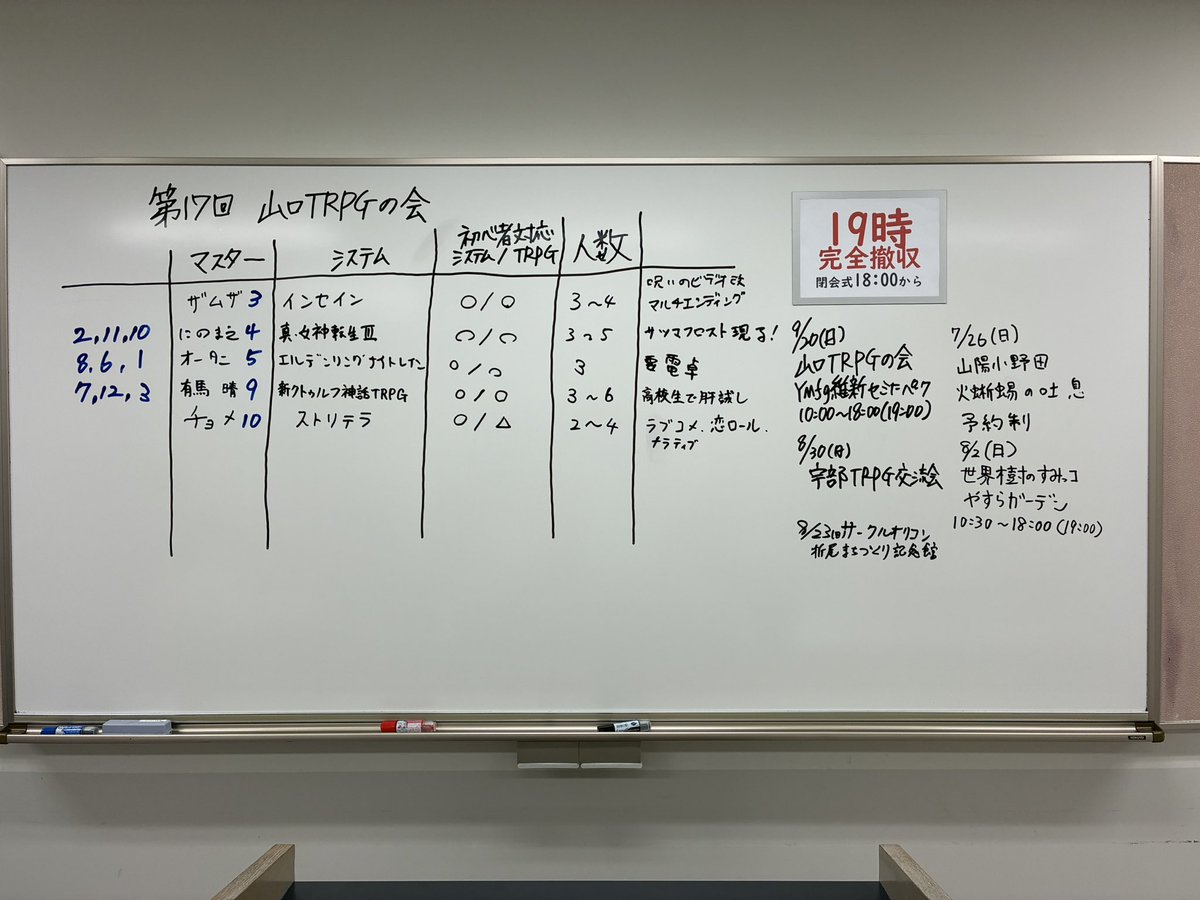 第17回 山口TRPGの会
マスター システム 初心者対応 システム/TRPG 人数
ザムザ 3 インセイン ○/○ 3〜4 呪いのビデオ改 マルチエンディング
2,11,10 にのまえ 4 真・女神転生Ⅲ ○/○ 3〜5 サツマフロスト現る!
8,6,1 オータニ 5 エルデンリングナイトレイン ○/○ 3 要電卓
7,12,3 有馬 晴 9 新クトゥルフ神話TRPG ○/○ 3〜6 高校生で肝試し
チョメ 10 ストリテラ ○/△ 2〜4 ラブコメ、恋ロール、
ナラティブ
19時
完全撤収
閉会式18:00から
9/20(日)
山口TRPGの会
Ymfg維新セミナーパーク
10:00〜18:00(19:00)
8/30(日)
宇部TRPG交流会
8/23(日)サークルオリコン
折尾まちづくり記念館
7/26(日)
山陽小野田
火蜥蜴の吐息
予約制
8/2(日)
世界樹のすみっコ
やすらガーデン
10:30〜18:00(19:00)